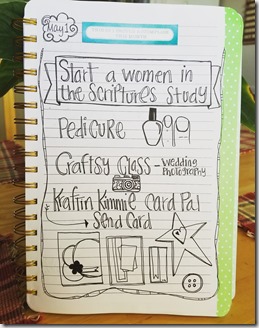 May 1
Start a women in
the Scriptures Study
Pedicure
Craftsy Class - Wedding
Photography
Kimmie Card Pal
Send Card